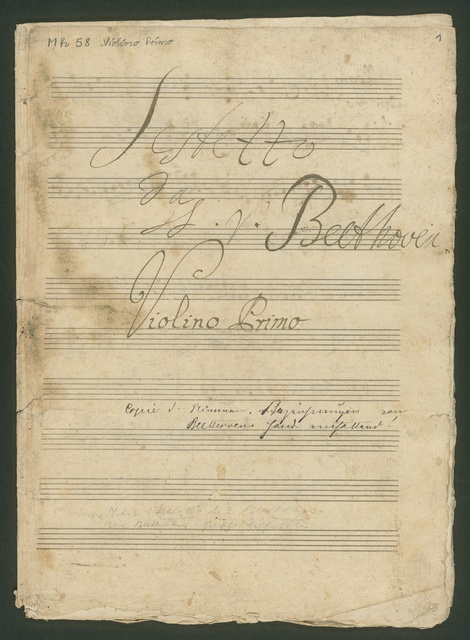 Mh 58 Violino Primo
1
Sestetto
da
L. v. Beethoven
Violino Primo
Copie d. Stimmen. Bezeichnungen von
Beethovens Hand enthaltend!